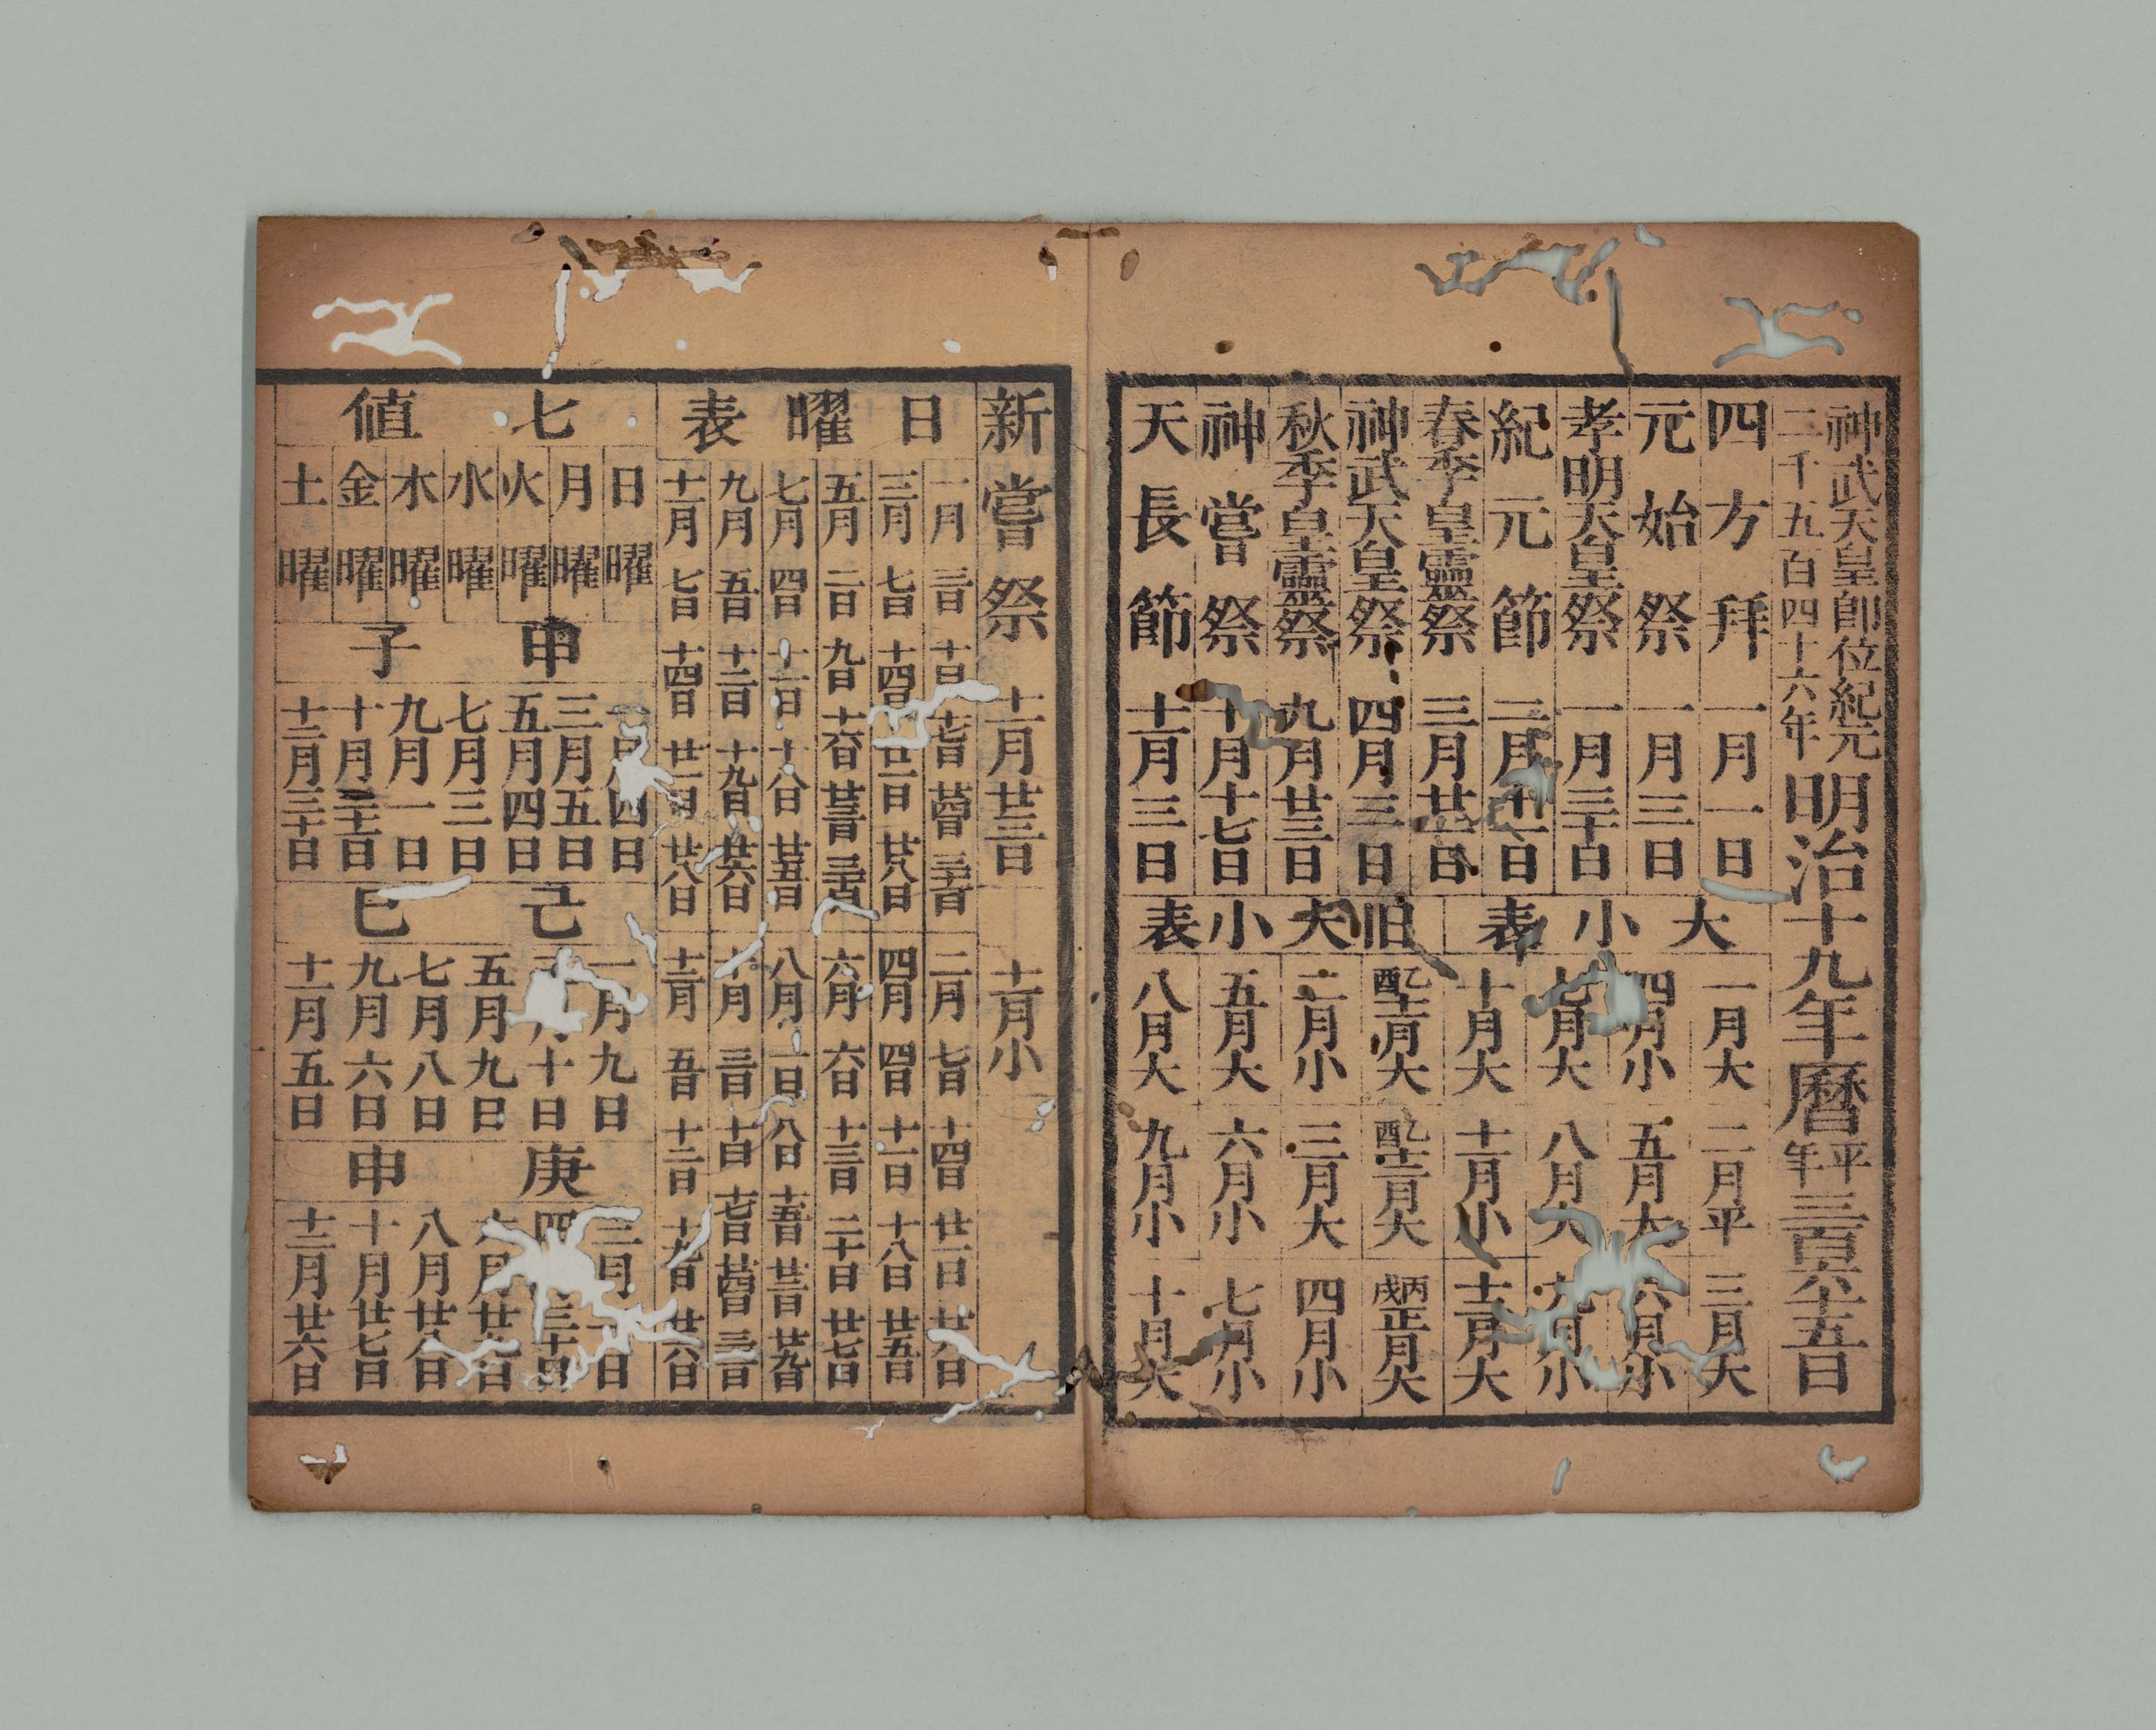 神武天皇即位紀元
二千五百四十六年
明治十九年曆
平年
三百六十五日
四方拜 一月一日
元始祭 一月三日
孝明天皇祭 一月三十日
紀元節 二月十一日
春季皇靈祭 三月廿一日
神武天皇祭 四月三日
秋季皇靈祭 九月廿三日
神嘗祭 十月十七日
天長節 十一月三日
大小表
一月大 二月平 三月大
四月小 五月大 六月小
七月大 八月大 九月小
十月大 十一月小 十二月大
旧大小表
乙酉十一月大 乙酉十二月大 丙戌正月大
二月小 三月大 四月小
五月大 六月小 七月小
八月大 九月小 十月大
新嘗祭 十一月廿三日 十一月小
日曜表
一月 三日 十日 十七日 廿四日 三十一日 二月 七日 十四日 廿一日 廿八日
三月 七日 十四日 廿一日 廿八日 四月 四日 十一日 十八日 廿五日
五月 二日 九日 十六日 廿三日 三十日 六月 六日 十三日 二十日 廿七日
七月 四日 十一日 十八日 廿五日 八月 一日 八日 十五日 廿二日 廿九日
九月 五日 十二日 十九日 廿六日 十月 三日 十日 十七日 廿四日 三十一日
十一月 七日 十四日 廿一日 廿八日 十二月 五日 十二日 十九日 廿六日
七値
日曜
月曜
火曜
水曜
木曜
金曜
土曜
申子
月四日
三月五日
五月四日
七月三日
九月一日
十月三十一日
十二月三十日
己巳
一月九日
月十日
五月九日
七月八日
九月六日
十一月五日
庚申
三月 日
四月三十日
六月廿九日
八月廿八日
十月廿七日
十二月廿六日